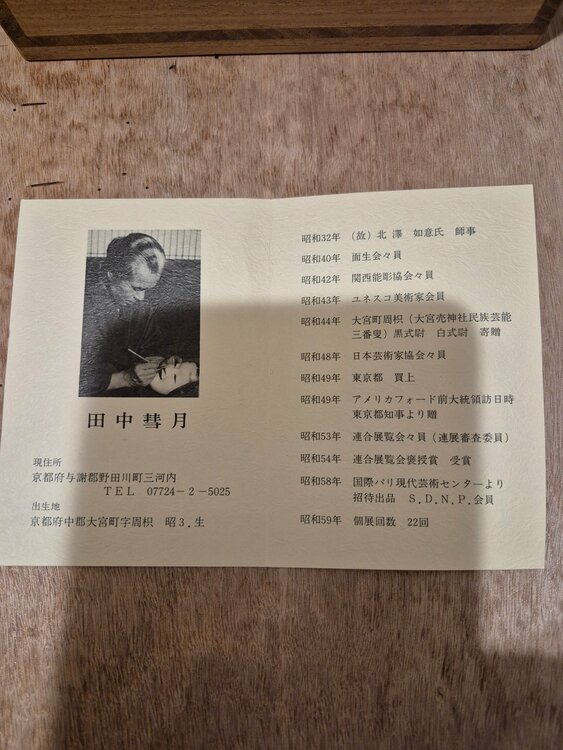 田中彗月
現住所
京都府与謝郡野田川町三河内
TEL 07724-2-5025
出生地
京都府中郡大宮町字周枳 昭3.生
昭和32年 (故)北澤 如意氏 師事
昭和40年 面生会々員
昭和42年 関西能彫協会々員
昭和43年 ユネスコ美術家会員
昭和44年 大宮町周枳(大宮売神社民族芸能
三番叟)黒式尉 白式尉 寄贈
昭和48年 日本芸術家協会々員
昭和49年 東京都 買上
昭和49年 アメリカフォード前大統領訪日時
東京都知事より贈
昭和53年 連合展覧会々員(連展審査委員)
昭和54年 連合展覧会褒授賞 受賞
昭和58年 国際パリ現代芸術センターより
招待出品 S.D.N.P.会員
昭和59年 個展回数 22回